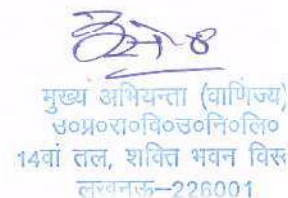 मुख्य अभियन्ता (वाणिज्य)
उ०प्र०रा०वि०उ०नि०लि०
14वां तल, शक्ति भवन विस्
लखनऊ–226001